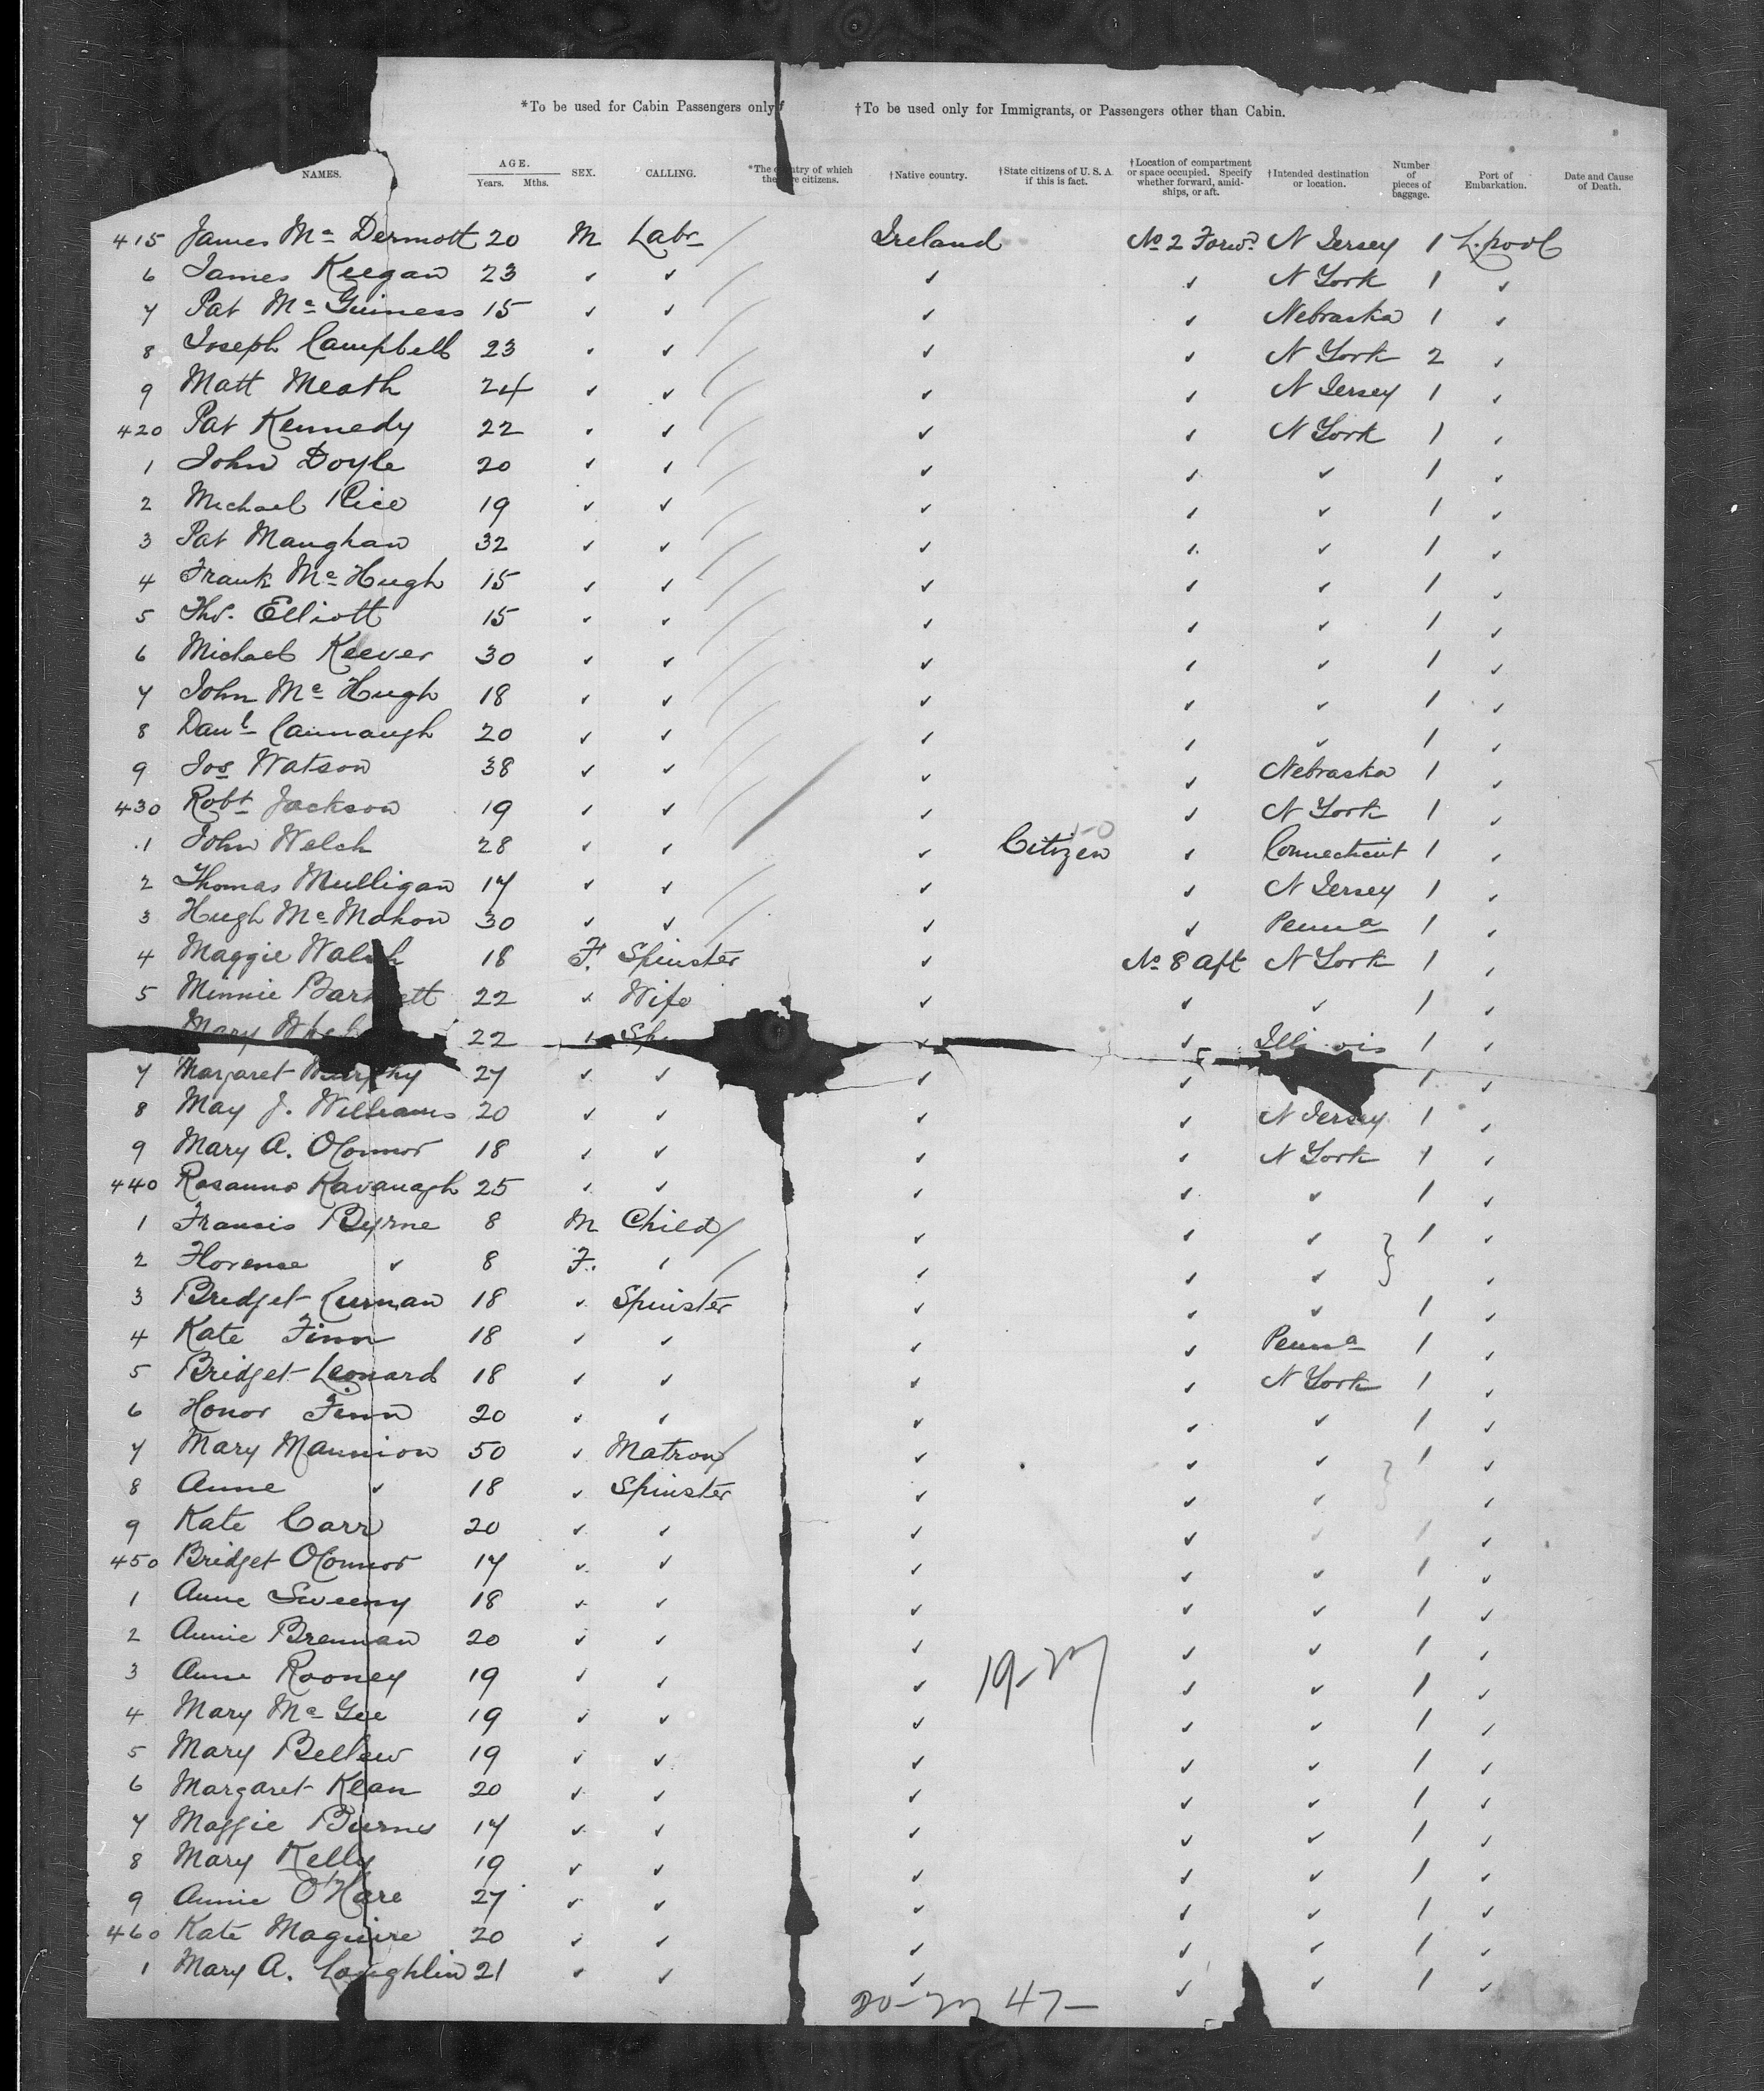 *To be used for Cabin Passengers only †To be used only for Immigrants, or Passengers other than Cabin.
NAMES. AGE. Years. Mths. SEX. CALLING. *The country of which they are citizens. †Native country. †State citizens of U. S. A. if this is fact. †Location of compartment or space occupied. Specify whether forward, amidships, or aft. †Intended destination or location. Number of pieces of baggage. Port of Embarkation. Date and Cause of Death.
415 James Mc Dermott 20 M Labr Ireland No 2 Forwd N Jersey 1 L.pool
6 James Keegan 23 ✓ ✓ ✓ ✓ N York 1 ✓
7 Pat Mc Guiness 15 ✓ ✓ ✓ ✓ Nebraska 1 ✓
8 Joseph Campbell 23 ✓ ✓ ✓ ✓ N York 2 ✓
9 Matt Meath 24 ✓ ✓ ✓ ✓ N Jersey 1 ✓
420 Pat Kennedy 22 ✓ ✓ ✓ ✓ N York 1 ✓
1 John Doyle 20 ✓ ✓ ✓ ✓ ✓ 1 ✓
2 Michael Rice 19 ✓ ✓ ✓ ✓ ✓ 1 ✓
3 Pat Maughan 32 ✓ ✓ ✓ ✓ ✓ 1 ✓
4 Frank Mc Hugh 15 ✓ ✓ ✓ ✓ ✓ 1 ✓
5 Thos. Elliott 15 ✓ ✓ ✓ ✓ ✓ 1 ✓
6 Michael Keever 30 ✓ ✓ ✓ ✓ ✓ 1 ✓
7 John Mc Hugh 18 ✓ ✓ ✓ ✓ ✓ 1 ✓
8 Danl Cannaugh 20 ✓ ✓ ✓ ✓ ✓ 1 ✓
9 Jos Watson 38 ✓ ✓ ✓ ✓ Nebraska 1 ✓
430 Robt Jackson 19 ✓ ✓ ✓ ✓ N York 1 ✓
1 John Welch 28 ✓ ✓ ✓ Citizen ✓ Connecticut 1 ✓
2 Thomas Mulligan 17 ✓ ✓ ✓ ✓ N Jersey 1 ✓
3 Hugh Mc Mahon 30 ✓ ✓ ✓ ✓ Penna 1 ✓
4 Maggie Walsh 18 F. Spinster ✓ No 8 aft N York 1 ✓
5 Minnie Bartlett 22 ✓ Wife ✓ ✓ ✓ 1 ✓
Mary 22 ✓ Sp ✓ ✓ Illinois 1 ✓
7 Margaret Murphy 27 ✓ ✓ ✓ ✓ 1 ✓
8 May J. Williams 20 ✓ ✓ ✓ ✓ N Jersey 1 ✓
9 Mary A. OConnor 18 ✓ ✓ ✓ ✓ N York 1 ✓
440 Rosanna Kavanagh 25 ✓ ✓ ✓ ✓ ✓ 1 ✓
1 Francis Byrne 8 M Child ✓ ✓ ✓ } 1 ✓
2 Florence ✓ 8 F. ✓ ✓ ✓ ✓ ✓
3 Bridget Curnan 18 ✓ Spinster ✓ ✓ ✓ 1 ✓
4 Kate Finn 18 ✓ ✓ ✓ ✓ Penna 1 ✓
5 Bridget Leonard 18 ✓ ✓ ✓ ✓ N York 1 ✓
6 Honor Finn 20 ✓ ✓ ✓ ✓ ✓ 1 ✓
7 Mary Mannion 50 ✓ Matron ✓ ✓ ✓ } 1 ✓
8 Anne ✓ 18 ✓ Spinster ✓ ✓ ✓ ✓
9 Kate Carr 20 ✓ ✓ ✓ ✓ ✓ 1 ✓
450 Bridget OConnor 17 ✓ ✓ ✓ ✓ ✓ 1 ✓
1 Anne Sweeny 18 ✓ ✓ ✓ ✓ ✓ 1 ✓
2 Annie Brennan 20 ✓ ✓ ✓ ✓ ✓ 1 ✓
3 Anne Rooney 19 ✓ ✓ ✓ ✓ ✓ 1 ✓
4 Mary Mc Gee 19 ✓ ✓ ✓ ✓ ✓ 1 ✓
5 Mary Bellew 19 ✓ ✓ ✓ ✓ ✓ 1 ✓
6 Margaret Kean 20 ✓ ✓ ✓ ✓ ✓ 1 ✓
7 Maggie Burns 17 ✓ ✓ ✓ ✓ ✓ 1 ✓
8 Mary Kelly 19 ✓ ✓ ✓ ✓ ✓ 1 ✓
9 Annie O'Hare 27 ✓ ✓ ✓ ✓ ✓ 1 ✓
460 Kate Maguire 20 ✓ ✓ ✓ ✓ ✓ 1 ✓
1 Mary A. Loughlin 21 ✓ ✓ ✓ ✓ ✓ 1 ✓
47—